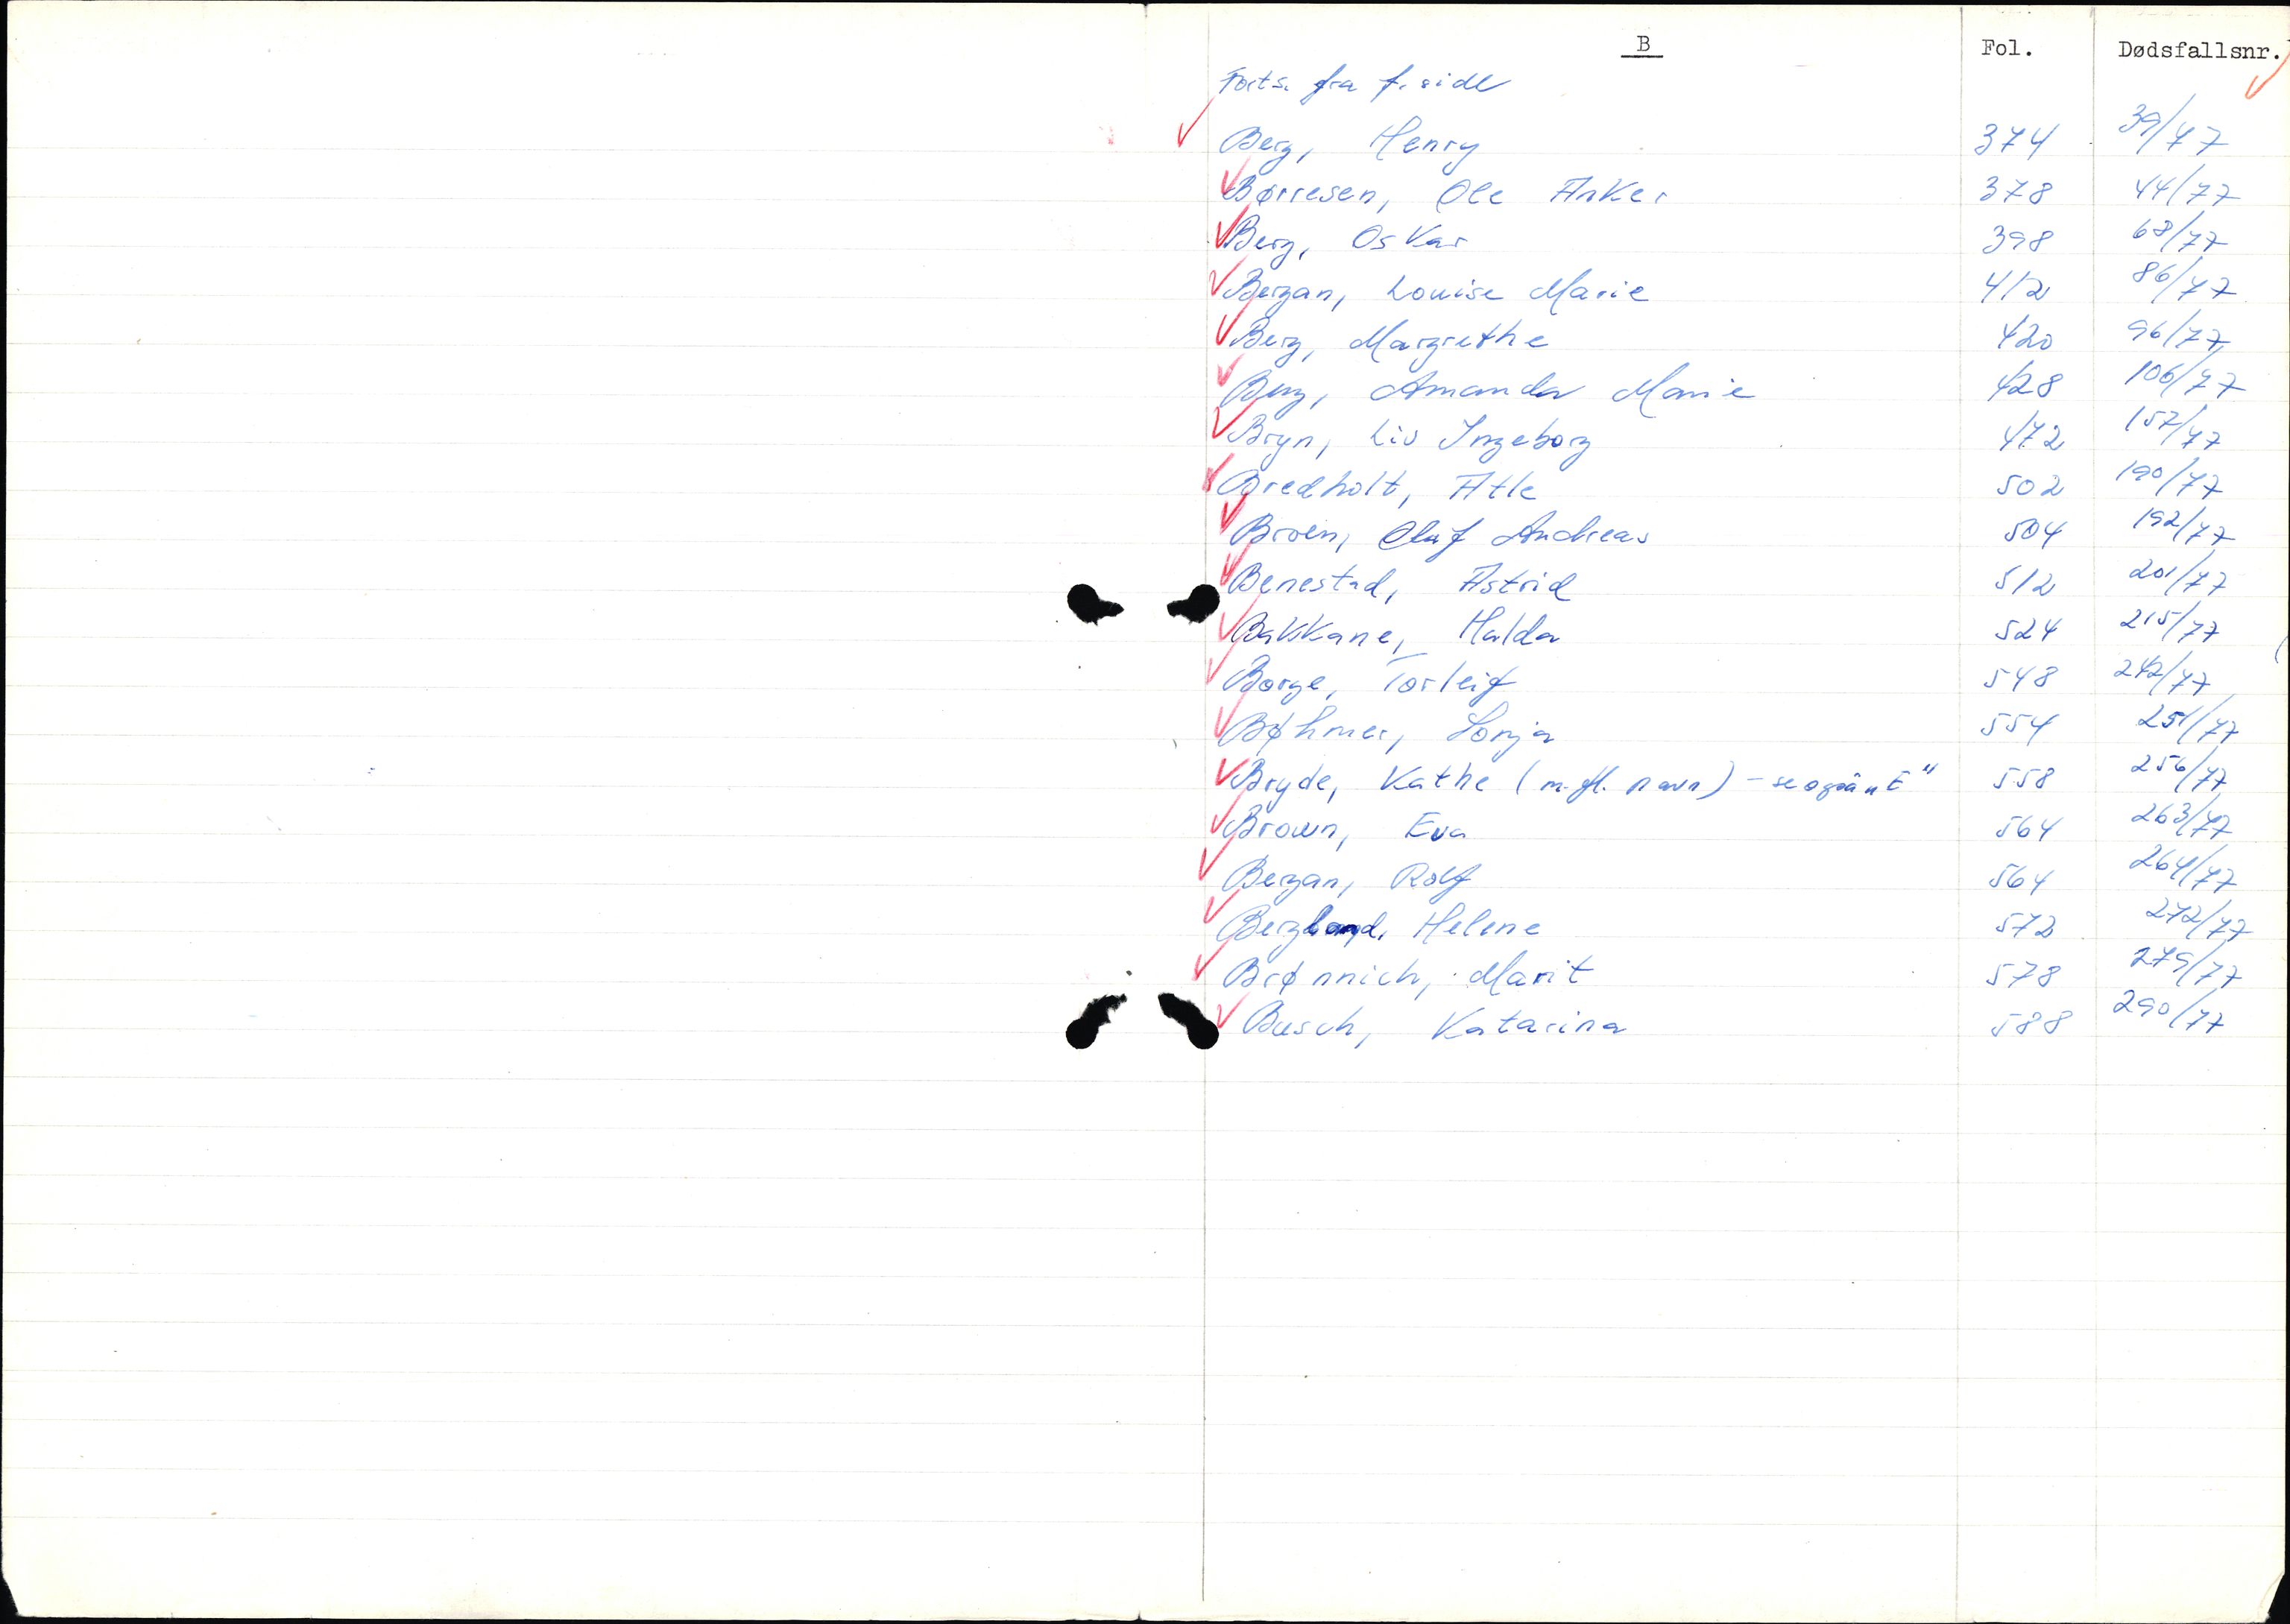 B Fol. Dødsfallsnr.
Forts. fra f. side
Berg, Henry 374 39/77
Børresen, Ole Anker 378 44/77
Berg, Oskar 398 68/77
Bergan, Louise Marie 412 86/77
Berg, Margrethe 420 96/77
Berg, Amanda Marie 428 106/77
Bryn, Liv Ingeborg 472 157/77
Bredholt, Atle 502 190/77
Broen, Oluf Andreas 504 192/77
Benestad, Astrid 512 201/77
Bakkane, Halda 524 215/77
Borge, Torleif 548 242/77
Bøhmer, Sonja 554 251/77
Bryde, Kathe (m. fl. navn) - se også "E" 558 256/77
Brown, Eva 564 263/77
Bergan, Rolf 564 264/77
Bergland, Helene 572 272/77
Brønnich, Marit 578 279/77
Busch, Katarina 588 290/77